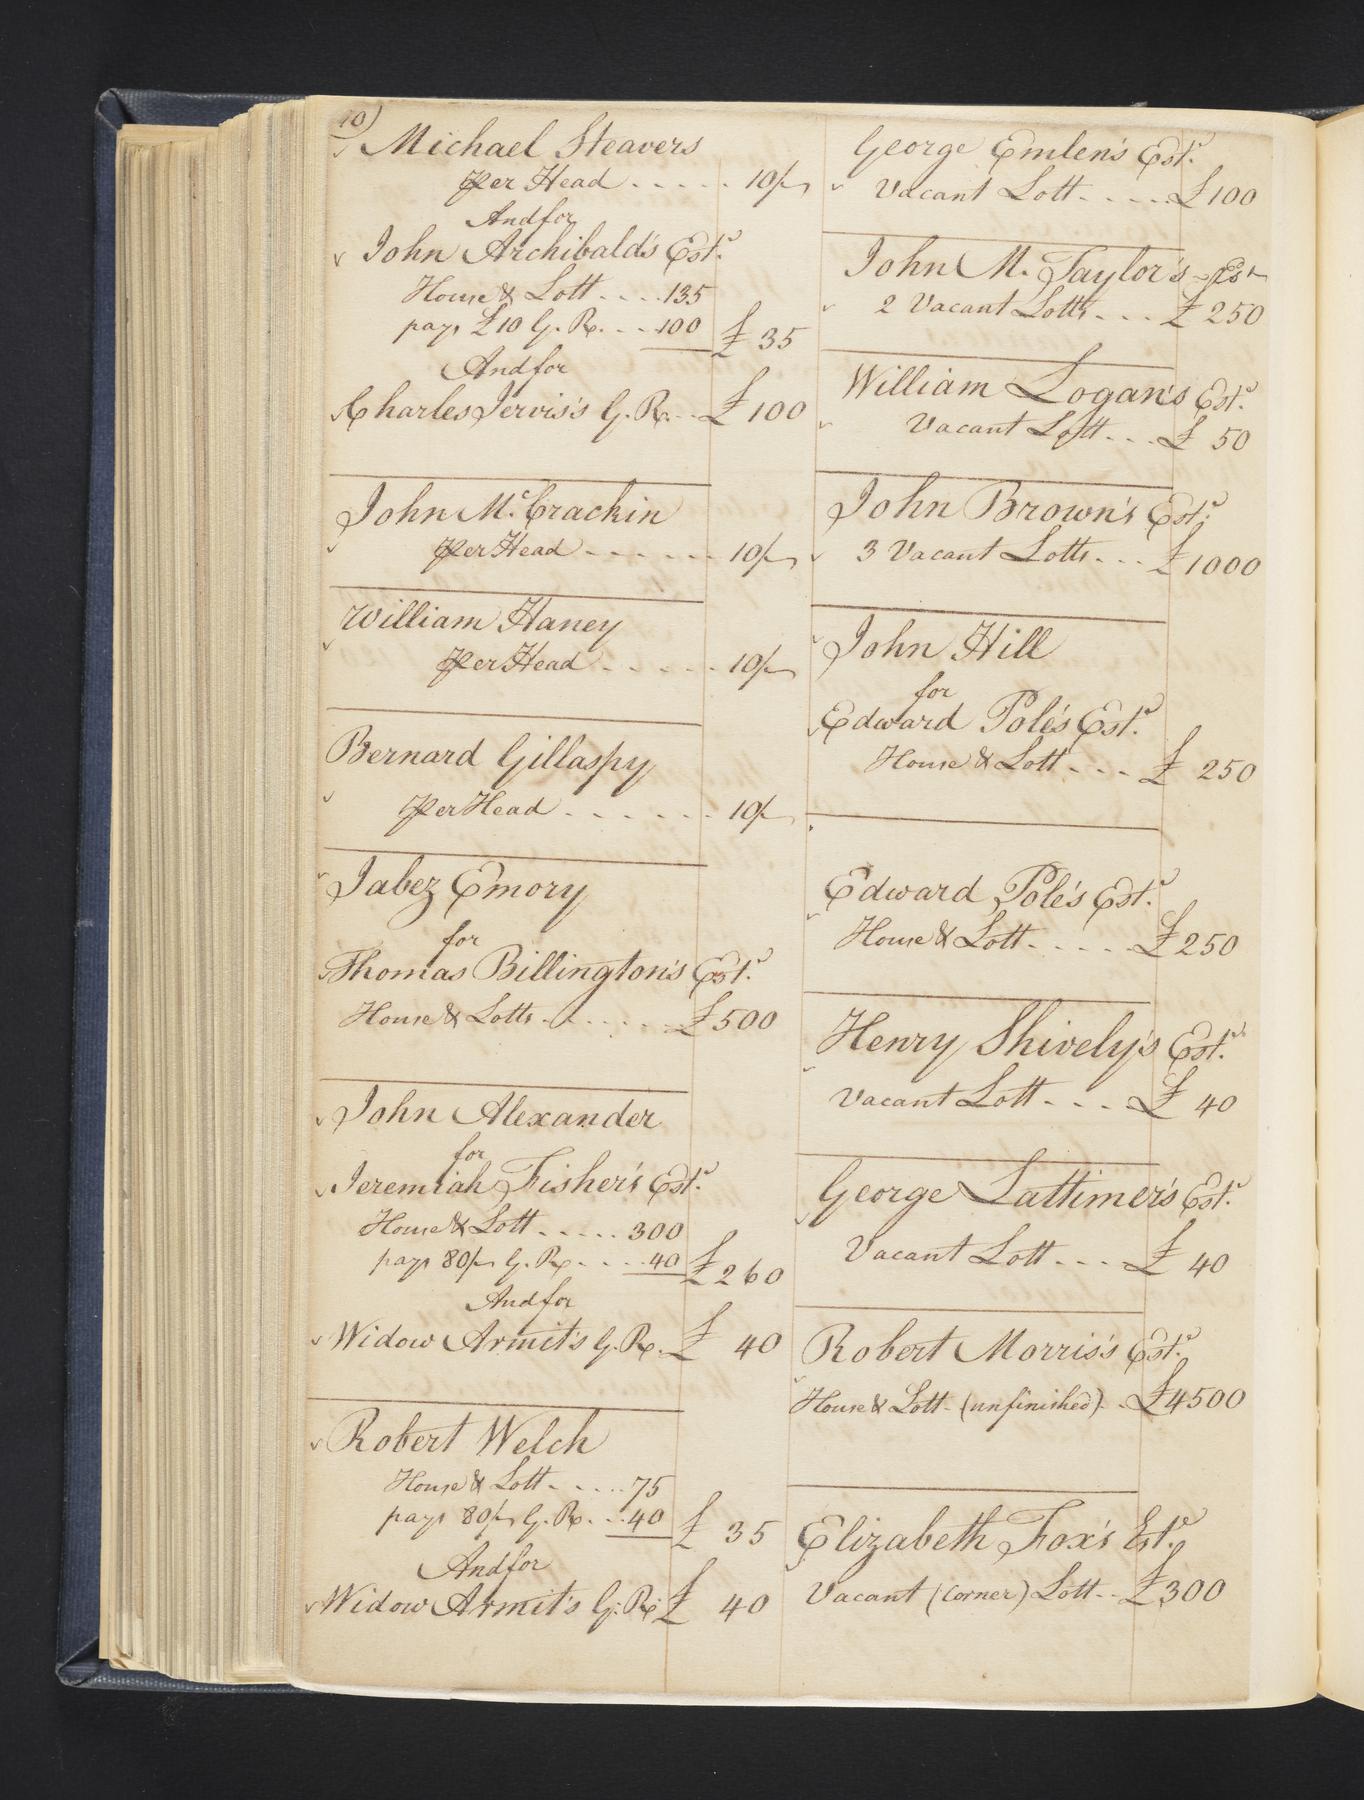 10)
Michael Steavers
Per Head . . . . . 10/
And for
John Archibald's Est.
House & Lott . . . . 135
pays £10 G. R. . . . 100 £ 35
And for
Charles Jervis's G. R. . . £ 100
John McCrackin
Per Head . . . . . . 10/
William Haney
Per Head . . . . . 10/
Bernard Gillaspy
Per Head . . . . . . 10/
Jabez Emory
for
Thomas Billington's Est.
House & Lotts . . . . . . £ 500
John Alexander
for
Jeremiah Fisher's Est.
House & Lott . . . . . 300
pays 80/ G. R. . . . . 40 £ 260
And for
Widow Armit's G. R. £ 40
Robert Welch
House & Lott . . . . . 75
pays 80/ G. R. . . . 40 £ 35
And for
Widow Armit's G. R. £ 40
George Emlen's Est.
Vacant Lott . . . . . £ 100
John M. Taylor's Est
2 Vacant Lotts . . . £ 250
William Logan's Est.
Vacant Lott . . . £ 50
John Brown's Est.
3 Vacant Lotts . . . £ 1000
John Hill
for
Edward Pole's Est.
House & Lott . . . £ 250
Edward Pole's Est.
House & Lott . . . . . £ 250
Henry Shively's Est.
Vacant Lott . . . . £ 40
George Lattimer's Est.
Vacant Lott . . . . £ 40
Robert Morris's Est.
House & Lott - (unfinished) . . £ 4500
Elizabeth Fox's Est.
Vacant (Corner) Lott . . £ 300